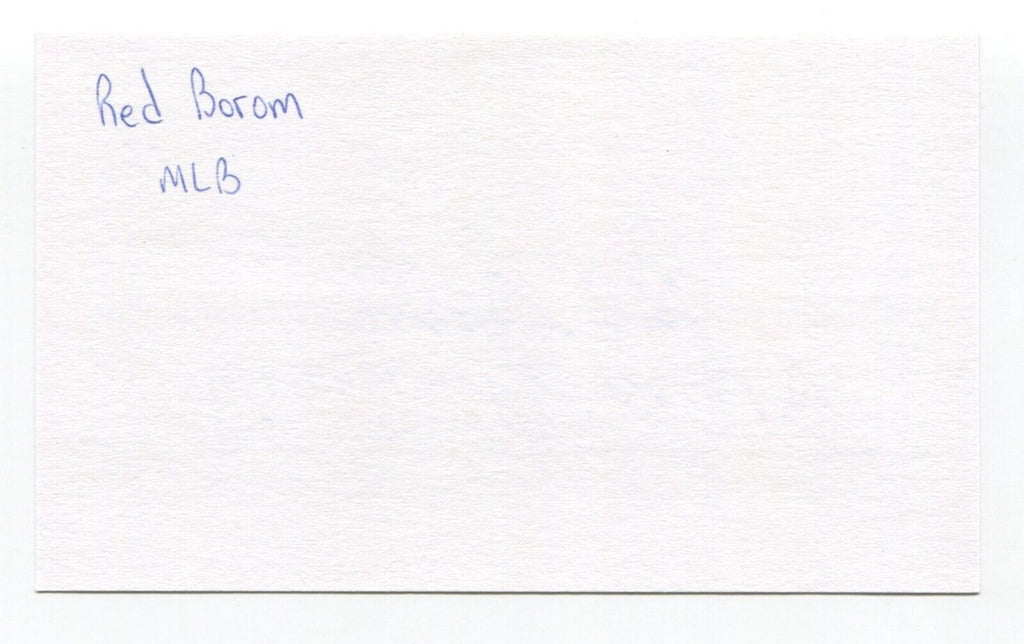 Red Borom
MLB